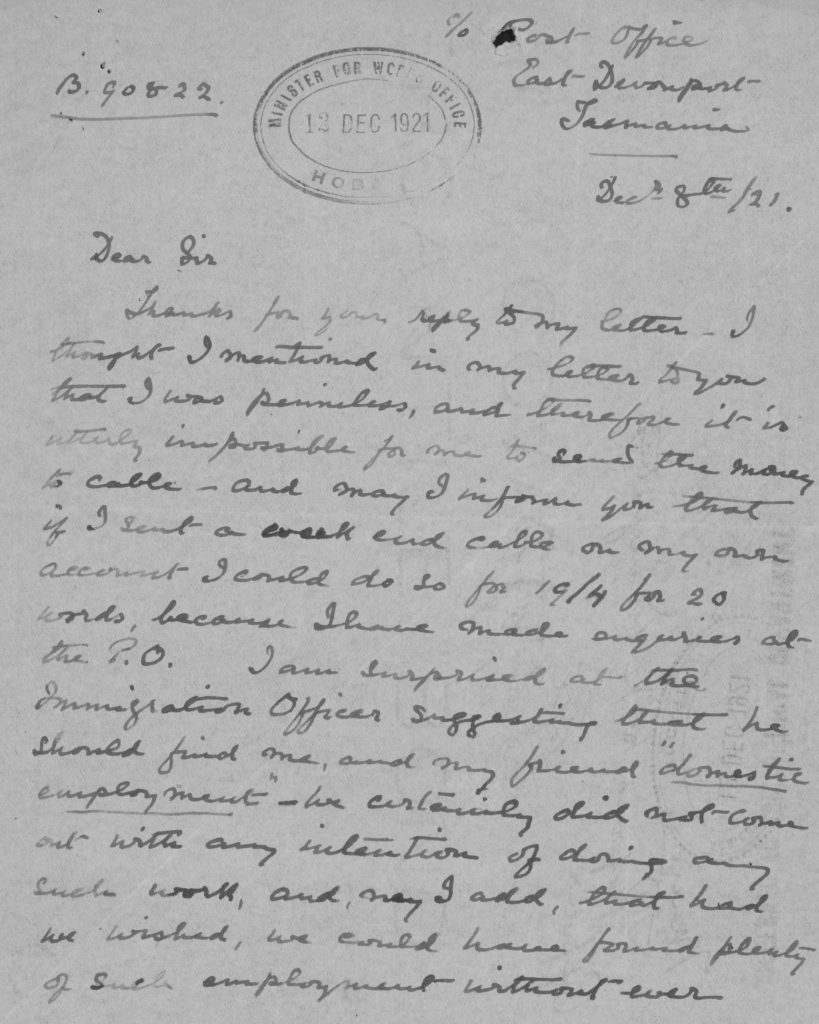 c/o Post Office
East Devonport
Tasmania
B. 90822.
MINISTER FOR WORKS OFFICE
12 DEC 1921
HOBA
Decr 8th/21.
Dear Sir
Thanks for your reply to my letter - I
thought I mentioned in my letter to you
that I was penniless, and therefore it is
utterly impossible for me to send the money
to cable - and may I inform you that
if I sent a week end cable on my own
account I could do so for 19/4 for 20
words, because I have made enquries at
the P.O. I am surprised at the
Immigration Officer suggesting that he
should find me, and my friend "domestic
employment" - we certainly did not come
out with any intention of doing any
such work, and, may I add, that had
we wished, we could have found plenty
of such employment without ever